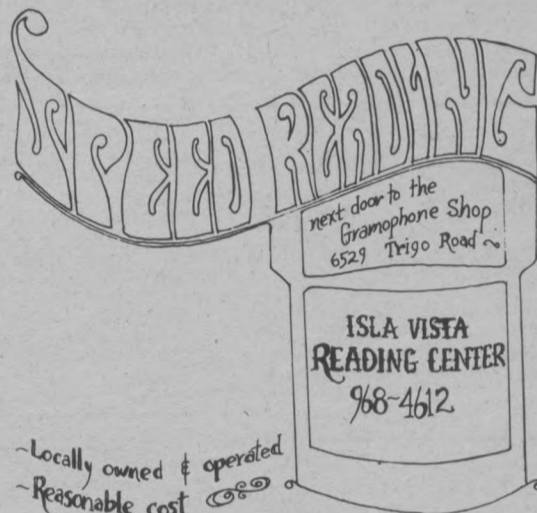 SPEED READING
next door to the
Gramophone Shop
6529 Trigo Road ~
ISLA VISTA
READING CENTER
968-4612
~Locally owned & operated
~Reasonable cost